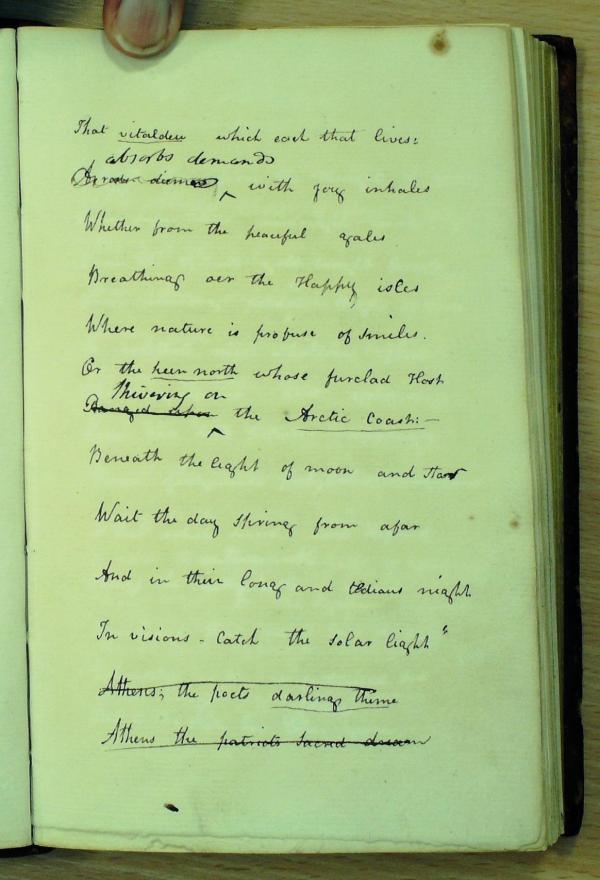 That vitaldew which each that lives:
absorbs demands
with joy inhales
Whether from the peaceful gales
Breathing oer the Happy isles
Where nature is profuse of smiles.
Or the keen north whose furclad Host
Shivering on
Ranged upon the Arctic Coast:—
Beneath the light of moon and Star
Wait the day spring from afar
And in their long and tedious night
In visions - catch the solar light"
Athens; the poets darling theme
Athens the patriots sacred dream